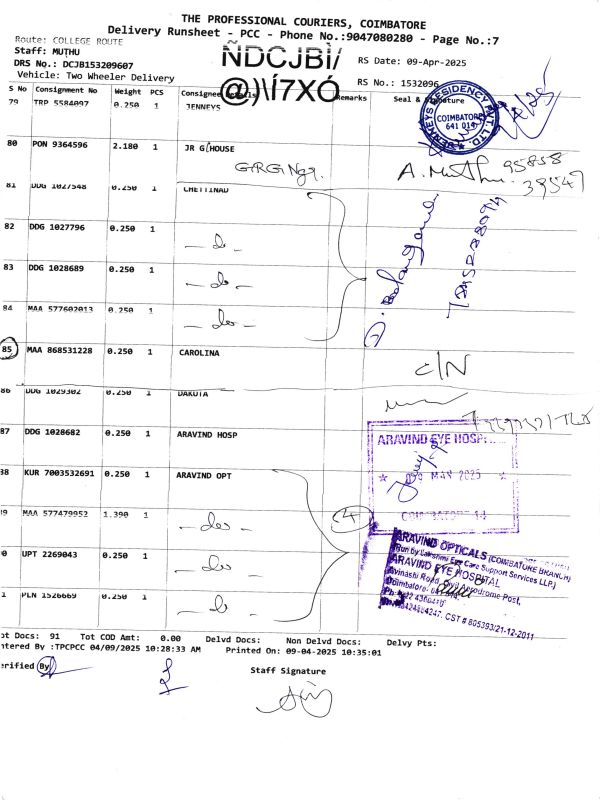 THE PROFESSIONAL COURIERS, COIMBATORE
Delivery Runsheet - PCC - Phone No.:9047080280 - Page No.:7
Route: COLLEGE ROUTE
Staff: MUTHU
DRS No.: DCJB153209607
Vehicle: Two Wheeler Delivery
ÑDCJBÌ/
@)\Í7XÓ
RS Date: 09-Apr-2025
RS No.: 1532096
S No Consignment No Weight PCS Consignee Details Remarks Seal & Signature
79 TRP 5584097 0.250 1 JENNEYS
JENNEYS RESIDENCY PVT. LTD.
COIMBATORE
641 014
80 PON 9364596 2.180 1 JR G HOUSE
GRG Ngr.
A. Muthu. 95858
39547
81 DDG 1027548 0.250 1 CHETTINAD
82 DDG 1027796 0.250 1 - do -
83 DDG 1028689 0.250 1 - do -
84 MAA 577602013 0.250 1 - do -
85 MAA 868531228 0.250 1 CAROLINA C/N
86 DDG 1029302 0.250 1 DAKOTA
87 DDG 1028682 0.250 1 ARAVIND HOSP
ARAVIND EYE HOSPI
MAY 2025
COIMBATORE-14
38 KUR 7003532691 0.250 1 ARAVIND OPT
39 MAA 577479952 1.390 1 - do -
4
0 UPT 2269043 0.250 1 - do -
1 PLN 1526669 0.250 1 - do -
ARAVIND OPTICALS (COIMBATORE BRANCH)
(Run by Lakshmi Eye Care Support Services LLP.)
ARAVIND EYE HOSPITAL
Avinashi Road, Civil Aerodrome Post,
Coimbatore-
ot Docs: 91 Tot COD Amt: 0.00 Delvd Docs: Non Delvd Docs: Delvy Pts:
ntered By :TPCPCC 04/09/2025 10:28:33 AM Printed On: 09-04-2025 10:35:01
erified By
Staff Signature